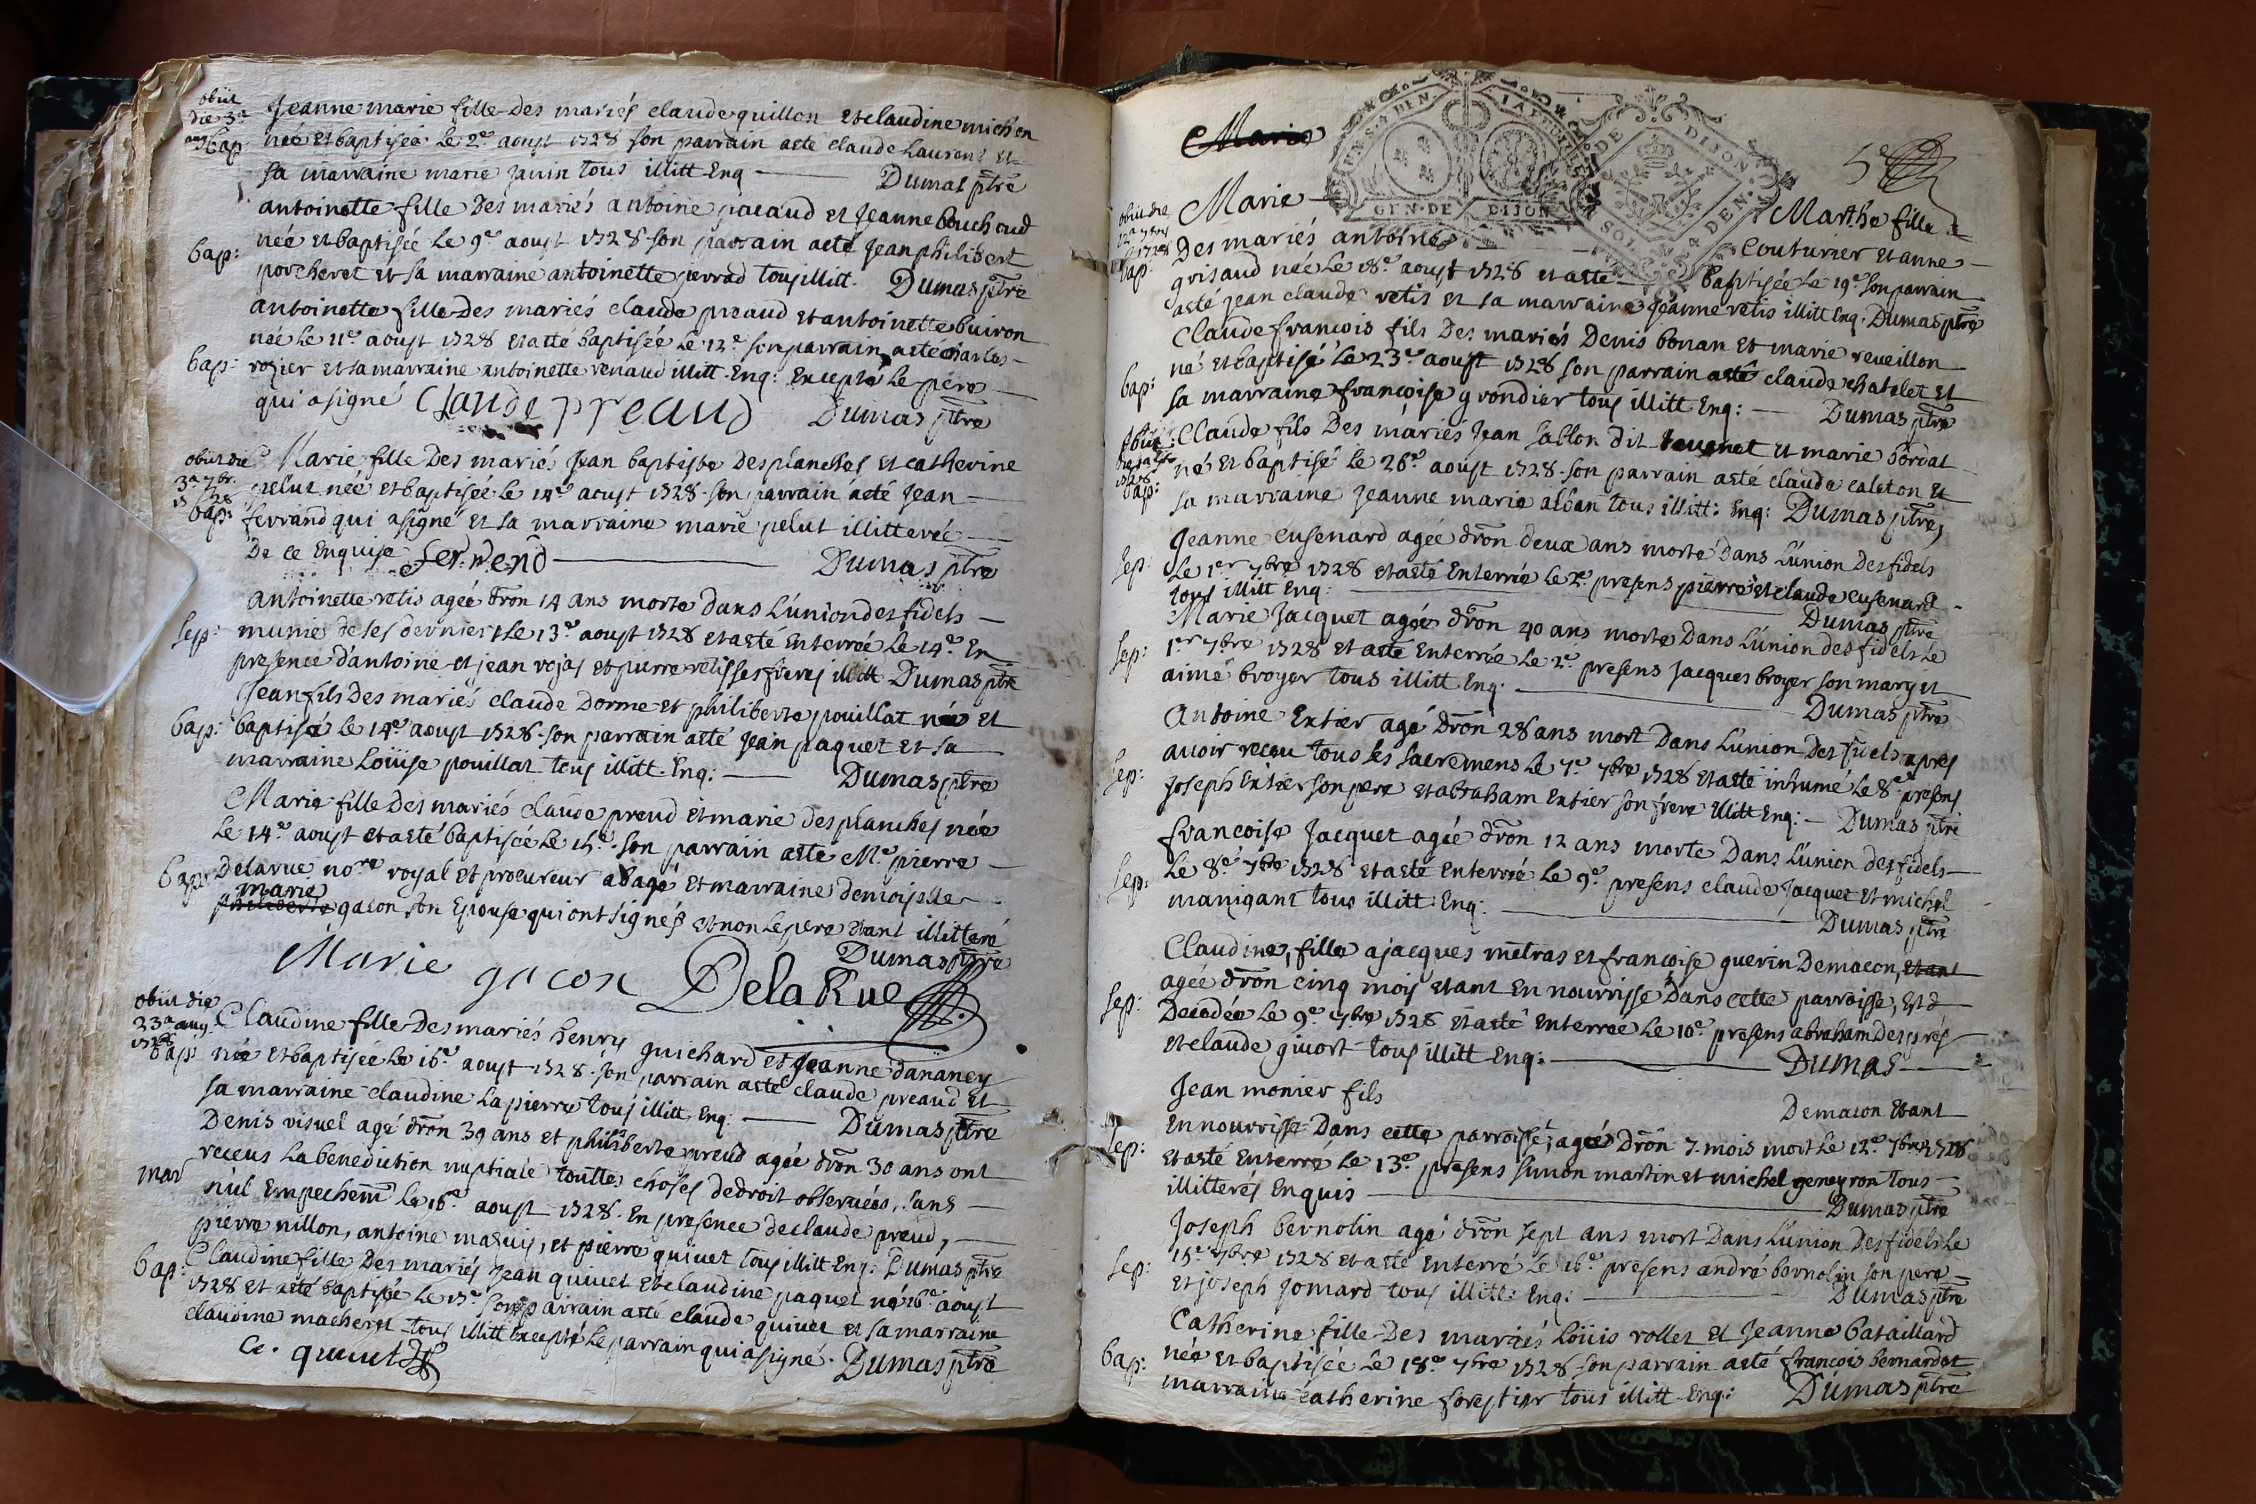 obiit
die 3a
aug
bap
Jeanne marie fille des mariés claude quillon et claudine michon
née et baptisée le 2e aoust 1728 son parrain a eté claude Laurent et
sa marraine marie janin tous illitt Enq Dumas ptre
antoinette fille des mariés antoine pacaud et Jeanne bouchoud
bap: née et baptisée le 9e aoust 1728 son parrain a eté Jean philibert
porcheret et sa marraine antoinette tous illitt. Dumas ptre
antoinette fille des mariés claude preaud et antoinette buiron
née le 11e aoust 1728 et a eté baptisée le 12e son parrain a eté charles
bap: rozier et sa marraine antoinette renaud illitt Enq: Excepté le pere
qui a signé Claude preaud Dumas ptre
obiit die
3a 7br.
1728
bap:
Marie fille des mariés Jean baptiste desplanches et catherine
pelut née et baptisée le 14e aoust 1728 son parrain a eté Jean
ferrand qui a signé et sa marraine marie pelut illitterée
de ce Enquise ferrend Dumas ptre
antoinette vetis agée dron 14 ans morte dans L'union des fidels
sep: munie de ses derniers le 13e aoust 1728 et a eté Enterrée le 14e En
presence d'antoine et jean et pierre vetis ses freres illitt Dumas ptre
Jean fils des mariés claude Dorme et philiberte pouillat née et
bap: baptisé le 14e aoust 1728 son parrain a eté Jean paquet et sa
marraine Loüise pouillat tous illitt. Enq: Dumas ptre
Marie fille des mariés claude preud et marie desplanches née
le 14e aoust et a eté baptisée le 15e son parrain a eté Me pierre
bap: Delarue nore royal et procureur a bagé et marraine demoiselle
marie
philiberte gacon son Epouse qui ont signés et non le pere Etant illitteré
Dumas ptre
Marie gacon DelaRue
obiit die
23a aug.
1728
bap:
Claudine fille des mariés henry guichard et Jeanne dananey
née et baptisée le 16e aoust 1728 son parrain a eté claude preaud et
sa marraine claudine Lapierre tous illitt Enq: Dumas ptre
Denis visuel agé dron 39 ans et philiberte preud agée dron 30 ans ont
mar receus La benediction nuptiale touttes choses de droit observées, sans
nul Empechemt le 16e aoust 1728. En presence de claude preud,
pierre nillon, antoine maruis, et pierre quivet tous illitt Enq: Dumas ptre
bap: Claudine fille des mariés Jean quivet et claudine paquet né 16e aoust
1728 et a eté baptisée le 17e son parrain a eté claude quivet et sa marraine
claudine macheret tous illitt Excepté le parrain qui a signé. Dumas ptre
Ce. quiuet
Marie
GEN. DE DIJON
5e
obiit die
12a 7bris
1728
bap:
Marie Marthe fille
Des mariés antoine Couturier et anne
grisaud née le 18e aoust 1728 et a eté baptisée le 19e son parrain
a eté jean claude vetis et sa marraine Jeanne vetis illitt Enq. Dumas ptre
Claude francois fils Des mariés Denis bonan et marie reveillon
bap: né et baptisé le 23e aoust 1728 son parrain a eté claude chatelet et
sa marraine francoise grondier tous illitt Enq: Dumas ptre
obiit
1728
bap:
Claude fils Des mariés Jean sablon dit et marie bordat
né et baptisé le 26e aoust 1728 son parrain a eté claude calston et
sa marraine Jeanne marie alban tous illitt: Enq: Dumas ptre
Jeanne cusenard agée dron deux ans morte dans L'union des fidels
sep: le 1er 7bre 1728 et a eté Enterrée le 2e presens pierre et claude cusenard
tous illitt Enq: Dumas ptre
Marie Jacquet agée dron 40 ans morte dans L'union des fidels le
sep: 1er 7bre 1728 et a eté Enterrée le 2e presens Jacques broyer son mary et
aimé broyer tous illitt Enq: Dumas ptre
antoine Entier agé dron 28 ans mort dans L'union des fidels apres
sep: avoir receu tous les sacremens le 7e 7bre 1728 et a eté inhumé le 8e presens
Joseph Entier son pere et abraham Entier son frere illitt Enq: Dumas ptre
francoise Jacquet agée dron 12 ans morte dans L'union des fidels
sep: le 8e 7bre 1728 et a eté Enterrée le 9e presens claude Jacquet et michel
manigant tous illitt Enq: Dumas ptre
Claudine, fille a jacques metras et francoise guerin demacon, Etant
agée dron cinq mois etant En nourrisse dans cette parroisse, Est
sep: Decedée le 9e 7bre 1728 et a eté Enterrée le 10e presens abraham Després
et claude givort tous illitt Enq: Dumas
Jean monier fils Demacon Etant
sep: En nourrisse Dans cette parroisse, agée Dron 7. mois mort le 12e 7bre 1728
et a eté Enterré le 13e presens simon martin et michel geneyron tous
illitterés Enquis Dumas ptre
Joseph bernolin agé dron sept ans mort dans L'union des fidels le
sep: 15e 7bre 1728 et a eté Enterré le 16e presens andré bernolin son pere
et joseph Jomard tous illitt: Enq: Dumas ptre
Catherine fille des mariés Loüis rollet et Jeanne bataillard
bap: née et baptisée le 18e 7bre 1728 son parrain a eté francois bernardet
marraine catherine forestier tous illitt Enq: Dumas ptre